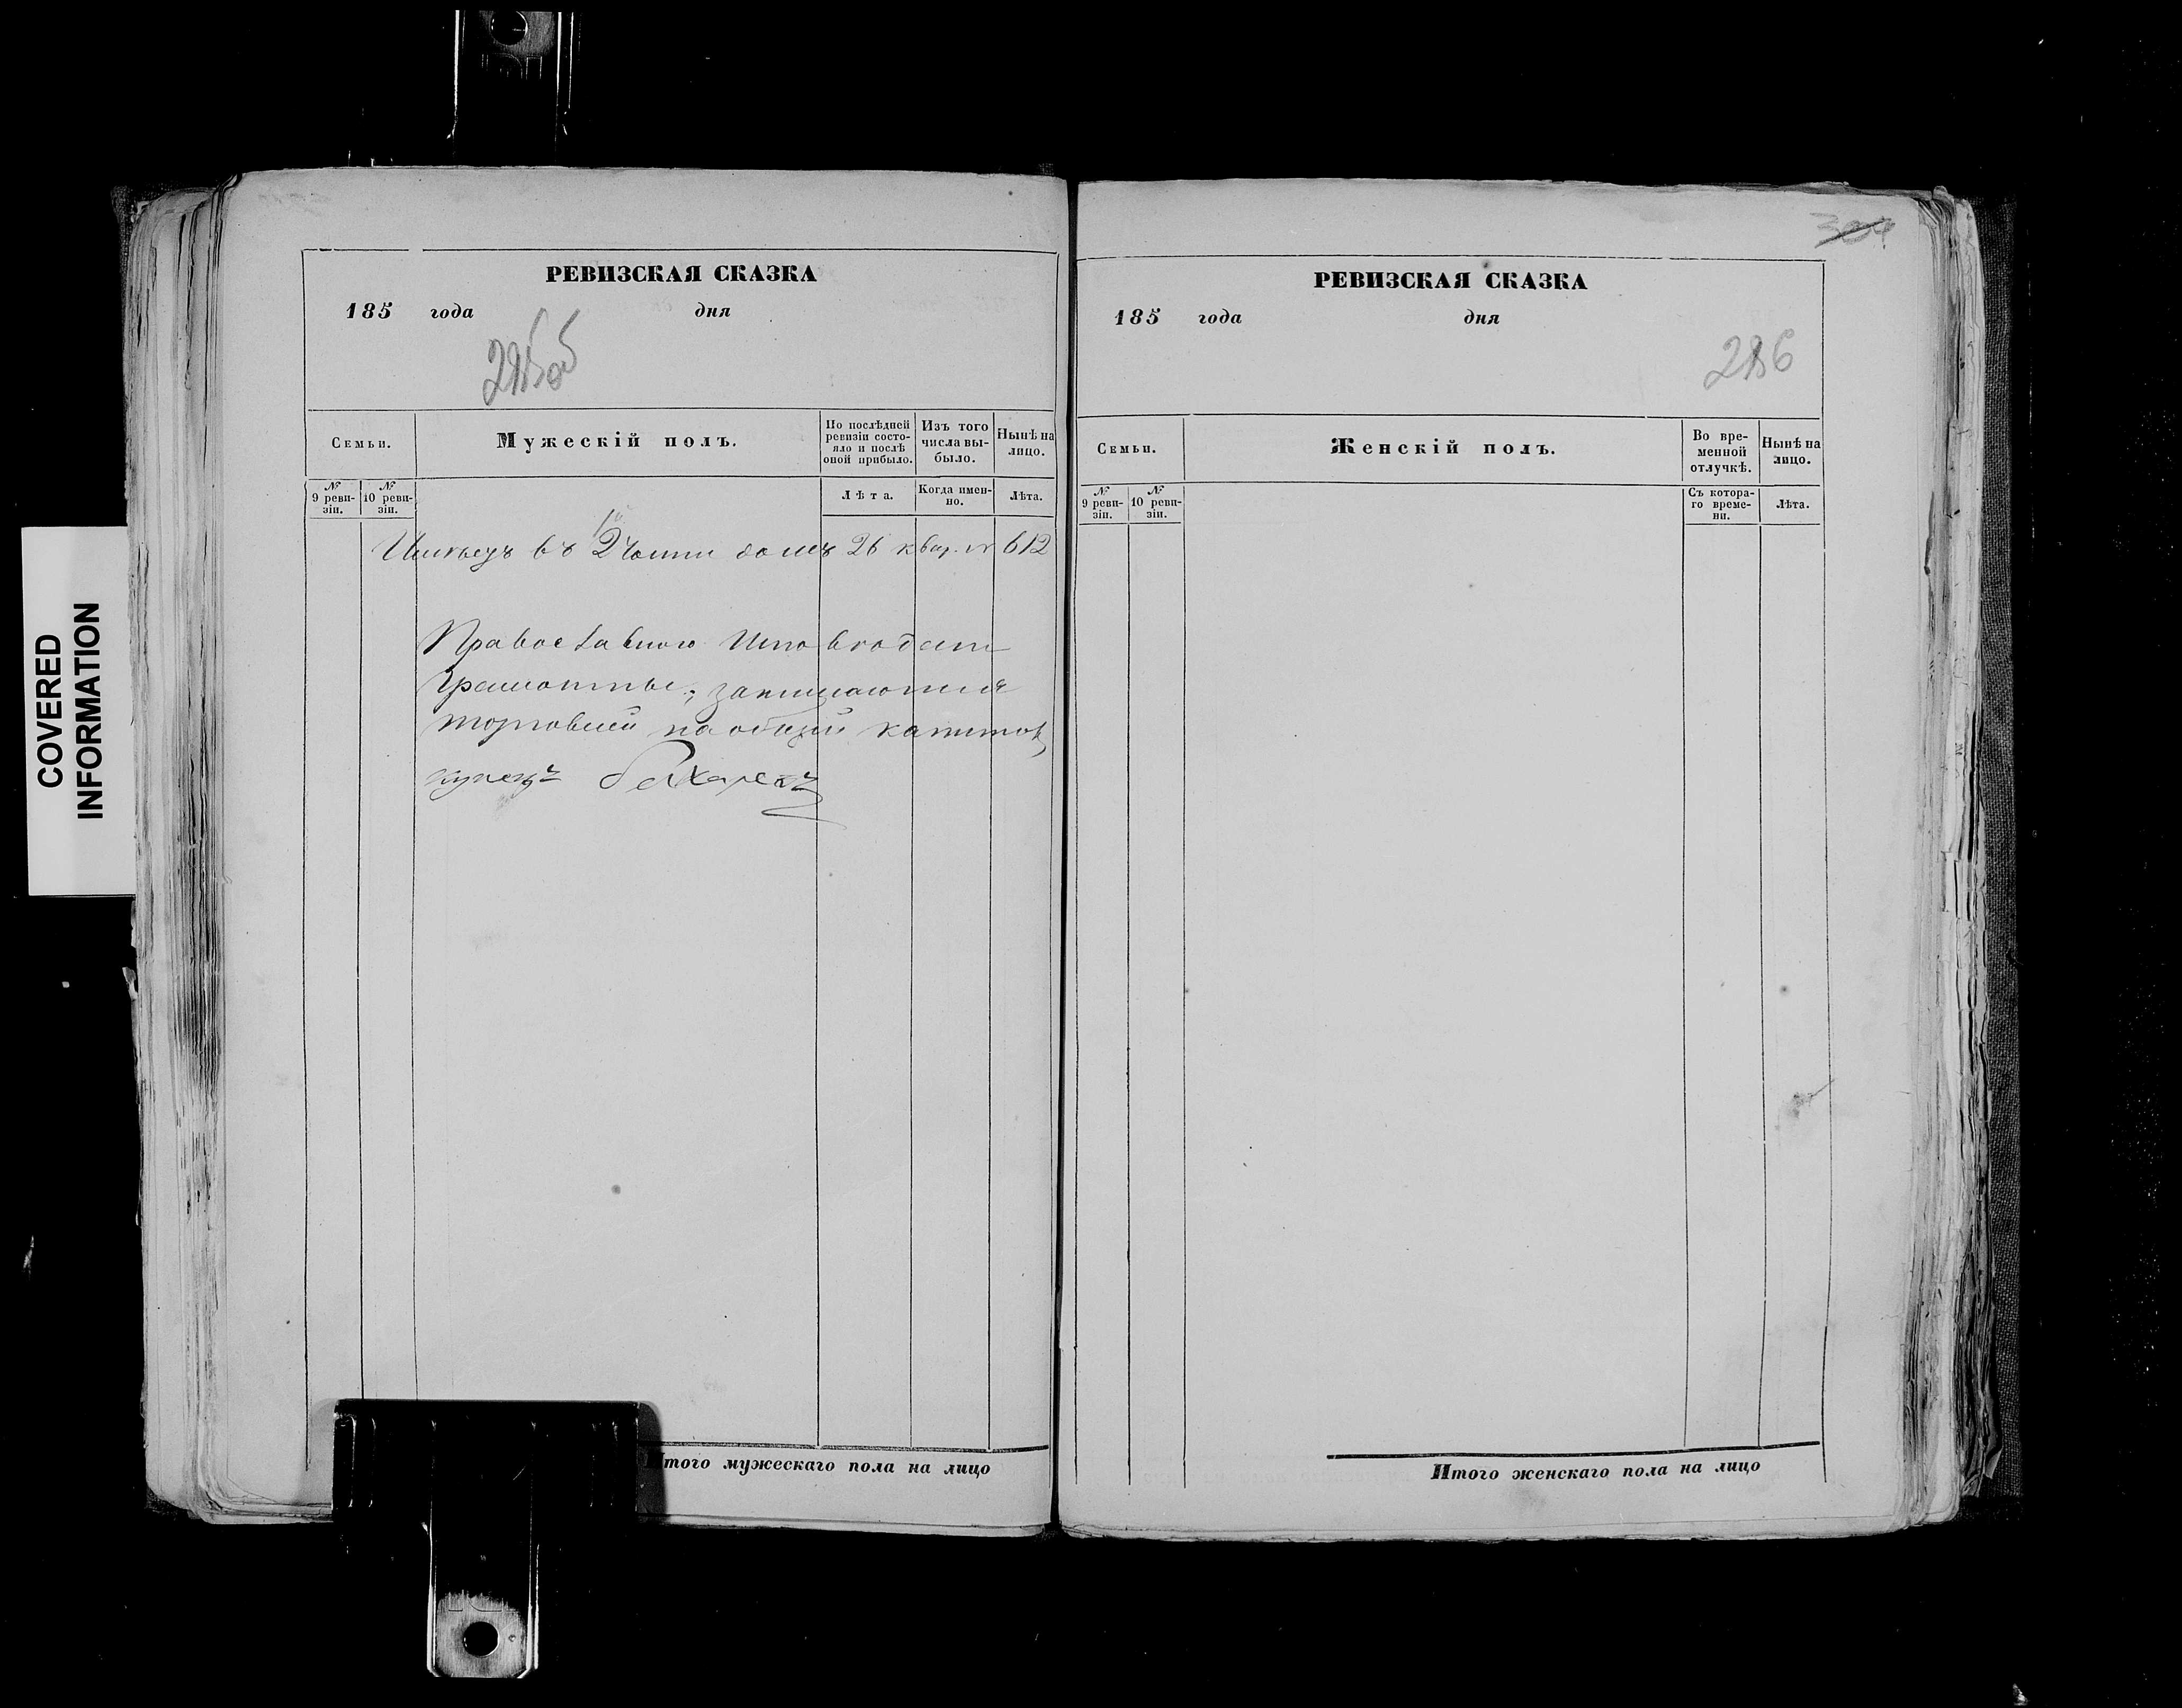 COVERED
INFORMATION
РЕВИЗСКАЯ СКАЗКА
185 года дня
Семьи.
Мужескій полъ.
По послѣдней ревизіи состо-
яло и послѣ
оной прибыло.
Изъ того
числа вы-
было.
Нынѣ на
лицо.
№
9 реви-
зіи.
№
10 реви-
зіи.
Лѣта.
Когда имен-
но.
Лѣта.
Имѣетъ въ 2 части домъ 26 квар. № 612
Православнаго Исповѣдан
грамотны, занимаются
торговлей на общій капитал
купецъ
Итого мужескаго пола на лицо
304
РЕВИЗСКАЯ СКАЗКА
185 года дня
286
Семьи.
Женскій полъ.
Во вре-
менной
отлучкѣ.
Нынѣ на
лицо.
№
9 реви-
зіи.
№
10 реви-
зіи.
Съ котора-
го време-
ни.
Лѣта.
Итого женскаго пола на лицо